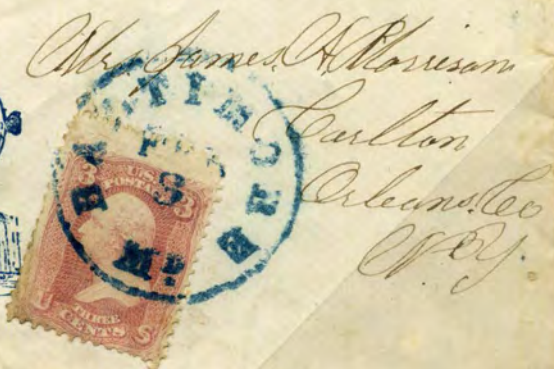 Mrs James H Morrison
Carlton
Orleans. Co
N. Y.
BALTIMORE
FEB
3
Md.
U.S. POSTAGE
3 3
THREE
CENTS
U S